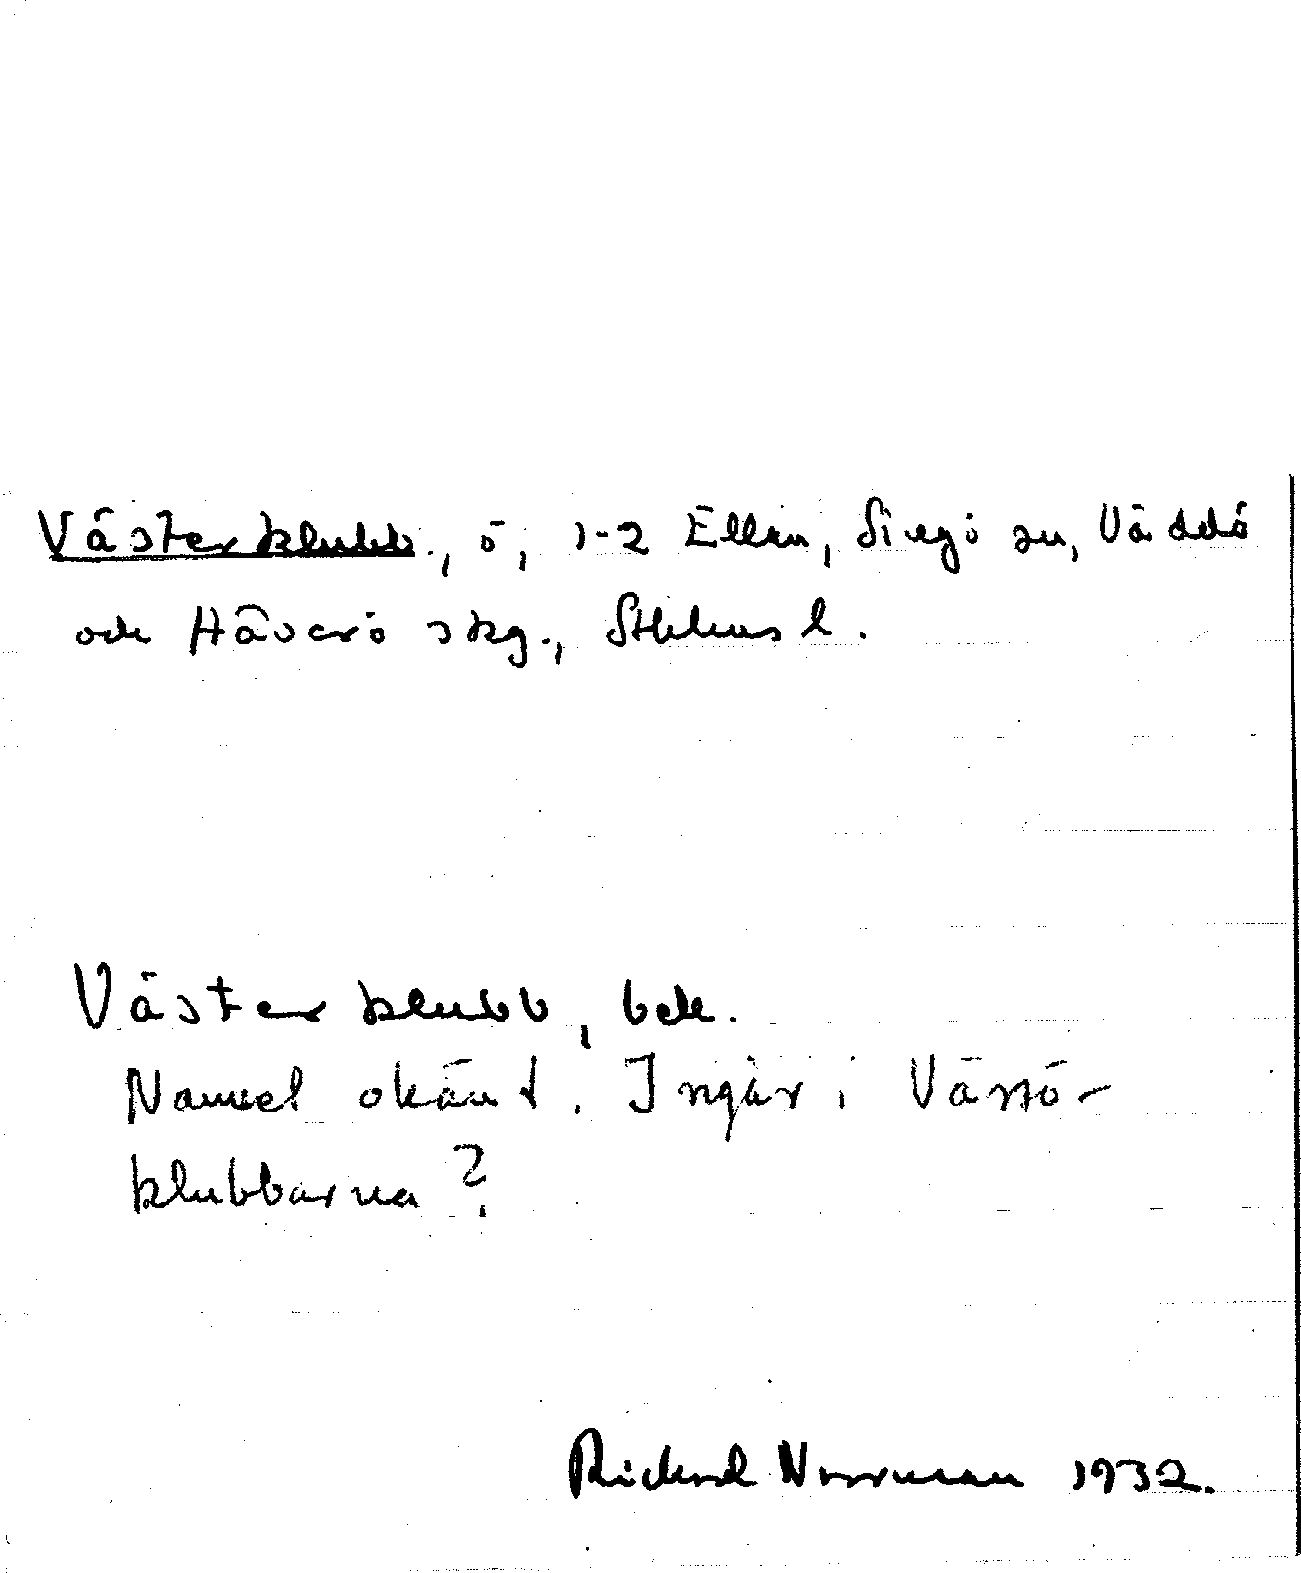 Västerklubb., ö, 1-2 Ellan, Singö sn, Väddö
och Häverö skg., Sthlms l.
Västerklubb, bek.
Namnet okänt. Ingår i Västö-
klubbarna?
Rickard Norrman 1932.